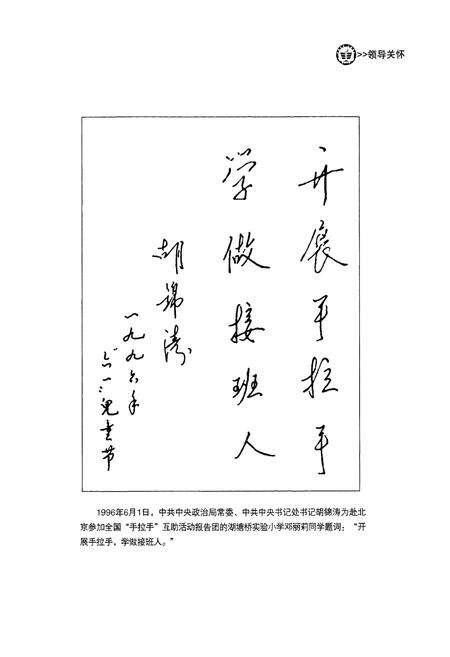 >>领导关怀
开展手拉手
学做接班人
胡锦涛
一九九六年
六一儿童节
1996年6月1日，中共中央政治局常委、中共中央书记处书记胡锦涛为赴北
京参加全国“手拉手”互助活动报告团的湖塘桥实验小学邓丽莉同学题词：“开
展手拉手，学做接班人。”